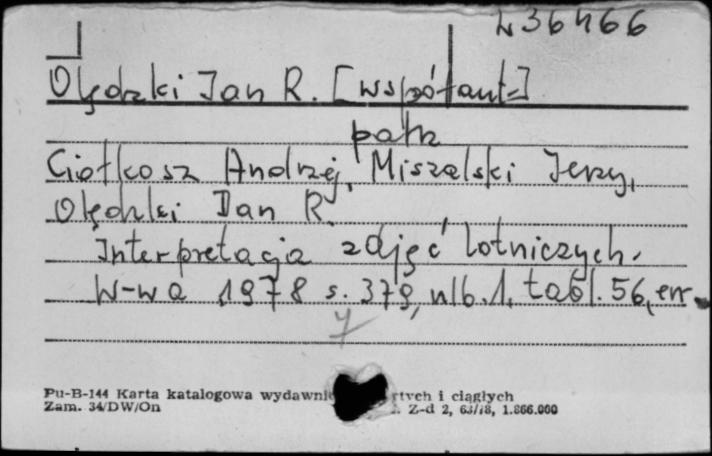 436466
Olędzki Jan R. [współaut.]
patrz
Ciołkosz Andrzej, Miszalski Jerzy,
Olędzki Jan R.
Interpretacja zdjęć lotniczych.
W-wa 1978 s. 379, nlb. 1, tabl. 56, err.
Pu-B-144 Karta katalogowa i ciągłych
Zam. 34/DW/On Z-d 2, 1.866.000